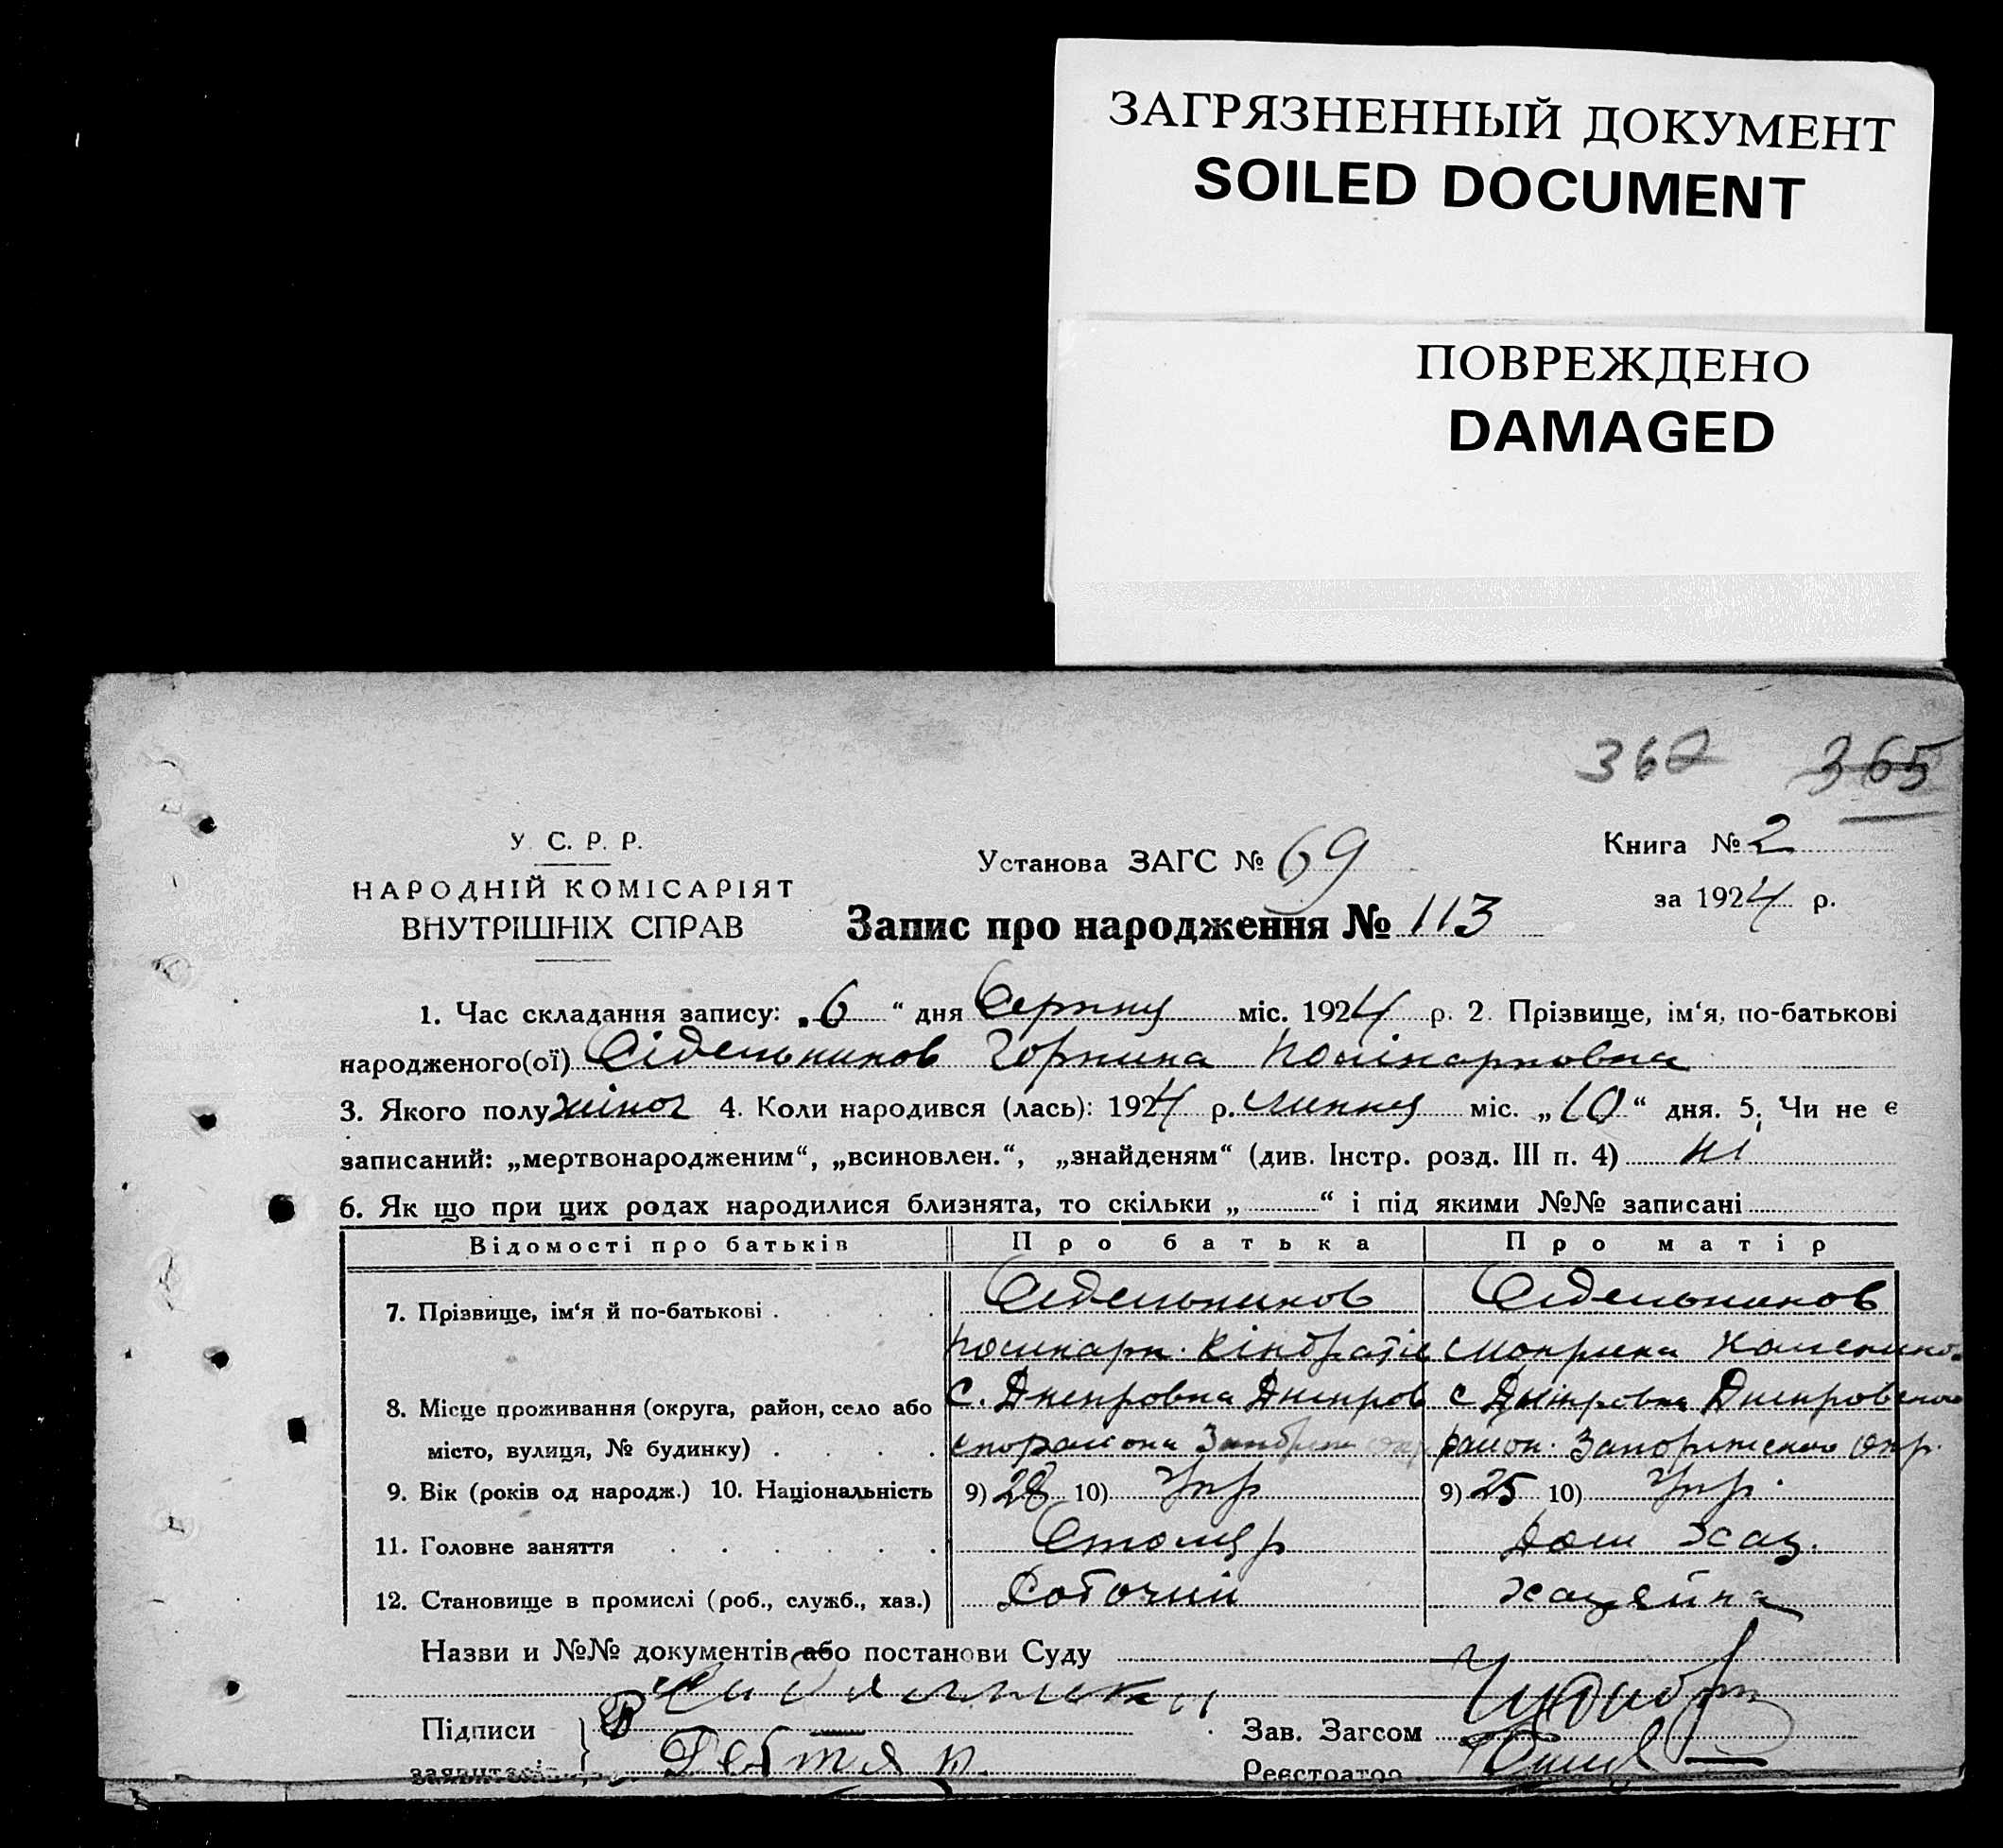 ЗАГРЯЗНЕННЫЙ ДОКУМЕНТ
SOILED DOCUMENT
ПОВРЕЖДЕНО
DAMAGED
365
У. С. Р. Р.
НАРОДНІЙ КОМІСАРІЯТ
ВНУТРІШНІХ СПРАВ
Установа ЗАГС № 69
Книга № 2
за 1924 р.
Запис про народження № 113
1. Час складання запису: „6“ дня Серпня міс. 1924 р. 2. Прізвище, ім‘я, по-батькові
народженого(ої) Сідельников Горпина Полікарповна
3. Якого полу жіноч 4. Коли народився (лась): 1924 р. липня міс. „10“ дня. 5. Чи не є
записаний: „мертвонародженим“, „всиновлен.“, „знайденям“ (див. Інстр. розд. III п. 4) ні
6. Як що при цих родах народилися близнята, то скільки „ “ і під якими №№ записані
Відомості про батьків Про батька Про матір
7. Прізвище, ім‘я й по-батькові Сідельников Сідельников
Поликарп. Кіндратів Мокрина
8. Місце проживання (округа, район, село або с. Днепровка Днепров с Дніпровка Днепровского
місто, вулиця, № будинку) район. Запорижского окр.
9. Вік (років од народж.) 10. Національність 9) 28 10) Укр 9) 25 10) Укр.
11. Головне заняття Столяр Дом Хаз.
12. Становище в промислі (роб., служб., хаз.) Робочий хазяйка
Назви и №№ документів або постанови Суду
Підписи Зав. Загсом
заявителів Дегтяр Реєстратор